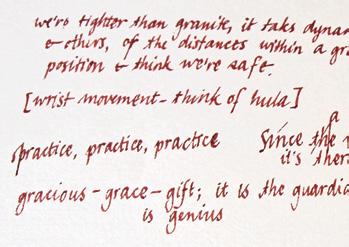 we're tighter than granite, it taks dynam
& othirs, of the distances within a gra
position & think we're safe.
[wrist movement - think of hula]
practice, practice, practice
a
Since the
it's ther
gracious - grace - gift; it is the guardia
is genius